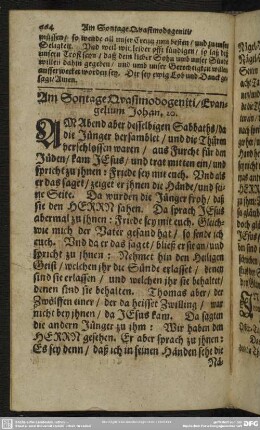 Am Sontage Qvasimodogeniti/
müssen/ so wende all unser Creutz zum besten/ und zu unser
Seligkeit. Und weil wir leider offt sündigen/ so laß diß
unsern Trost seyn/ daß dein lieber Sohn umb unser Sünde
willen dahin gegeben/ und umb unser Gerechtigkeit willen
aufferwecket worden sey. Dir sey ewig Lob und Danck ge-
sagt/ Amen.
Am Sontage Qvasimodogeniti/ Evan-
gelium Johan. 20.
AM Abend aber desselbigen Sabbaths/ da
die Jünger versamlet/ und die Thüren
verschlossen waren/ aus Furcht für den
Jüden/ kam JEsus/ und trat mitten ein/ und
spricht zu ihnen: Friede sey mit euch. Und als
er das saget/ zeiget er ihnen die Hände/ und sei-
ne Seite. Da wurden die Jünger froh/ daß
sie den HERRN sahen. Da sprach JEsus
abermal zu ihnen: Friede sey mit euch. Gleich-
wie mich der Vater gesand hat/ so sende ich
euch. Und da er das saget/ bließ er sie an/ und
spricht zu ihnen: Nehmet hin den Heiligen
Geist/ welchen ihr die Sünde erlasset/ denen
sind sie erlassen/ und welchen ihr sie behaltet/
denen sind sie behalten. Thomas aber/ der
Zwölffen einer/ der da heisset Zwilling/ war
nicht bey ihnen/ da JEsus kam. Da sagten
die andern Jünger zu ihm: Wir haben den
HERRN gesehen. Er aber sprach zu ihnen:
Es sey denn/ daß ich in seinen Händen sehe die
Nä-
DFG